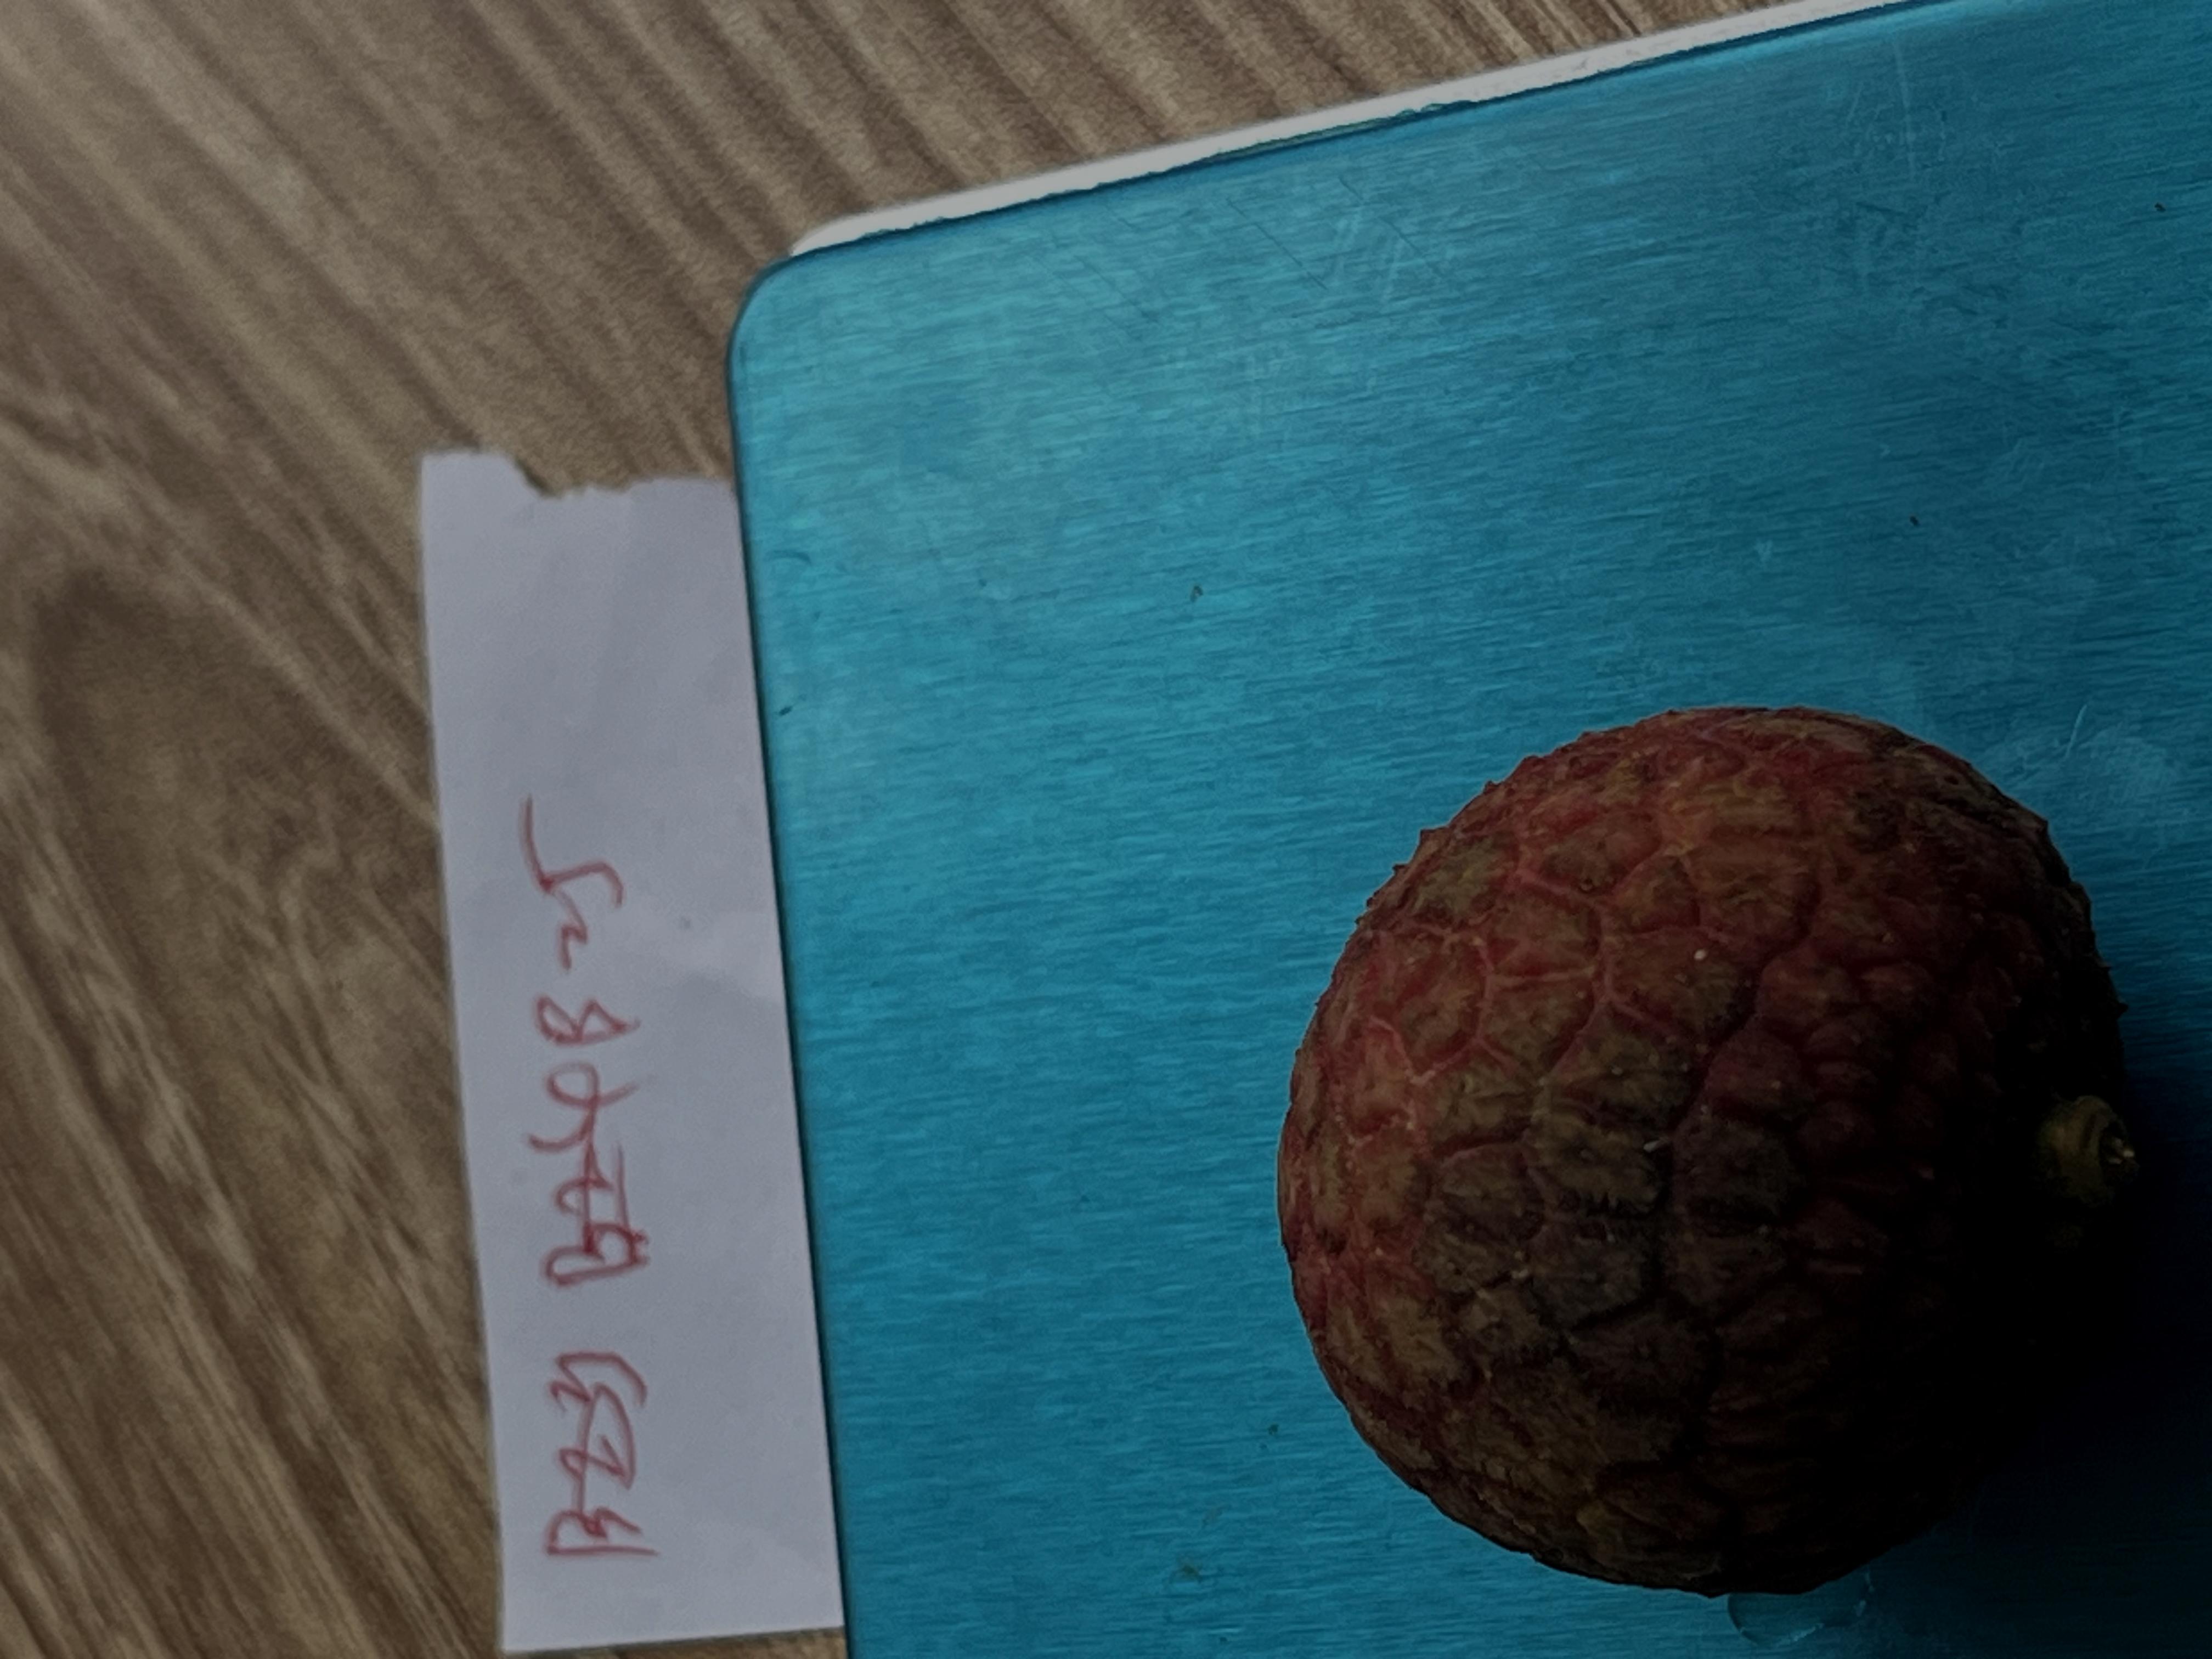 B23 B24 B25